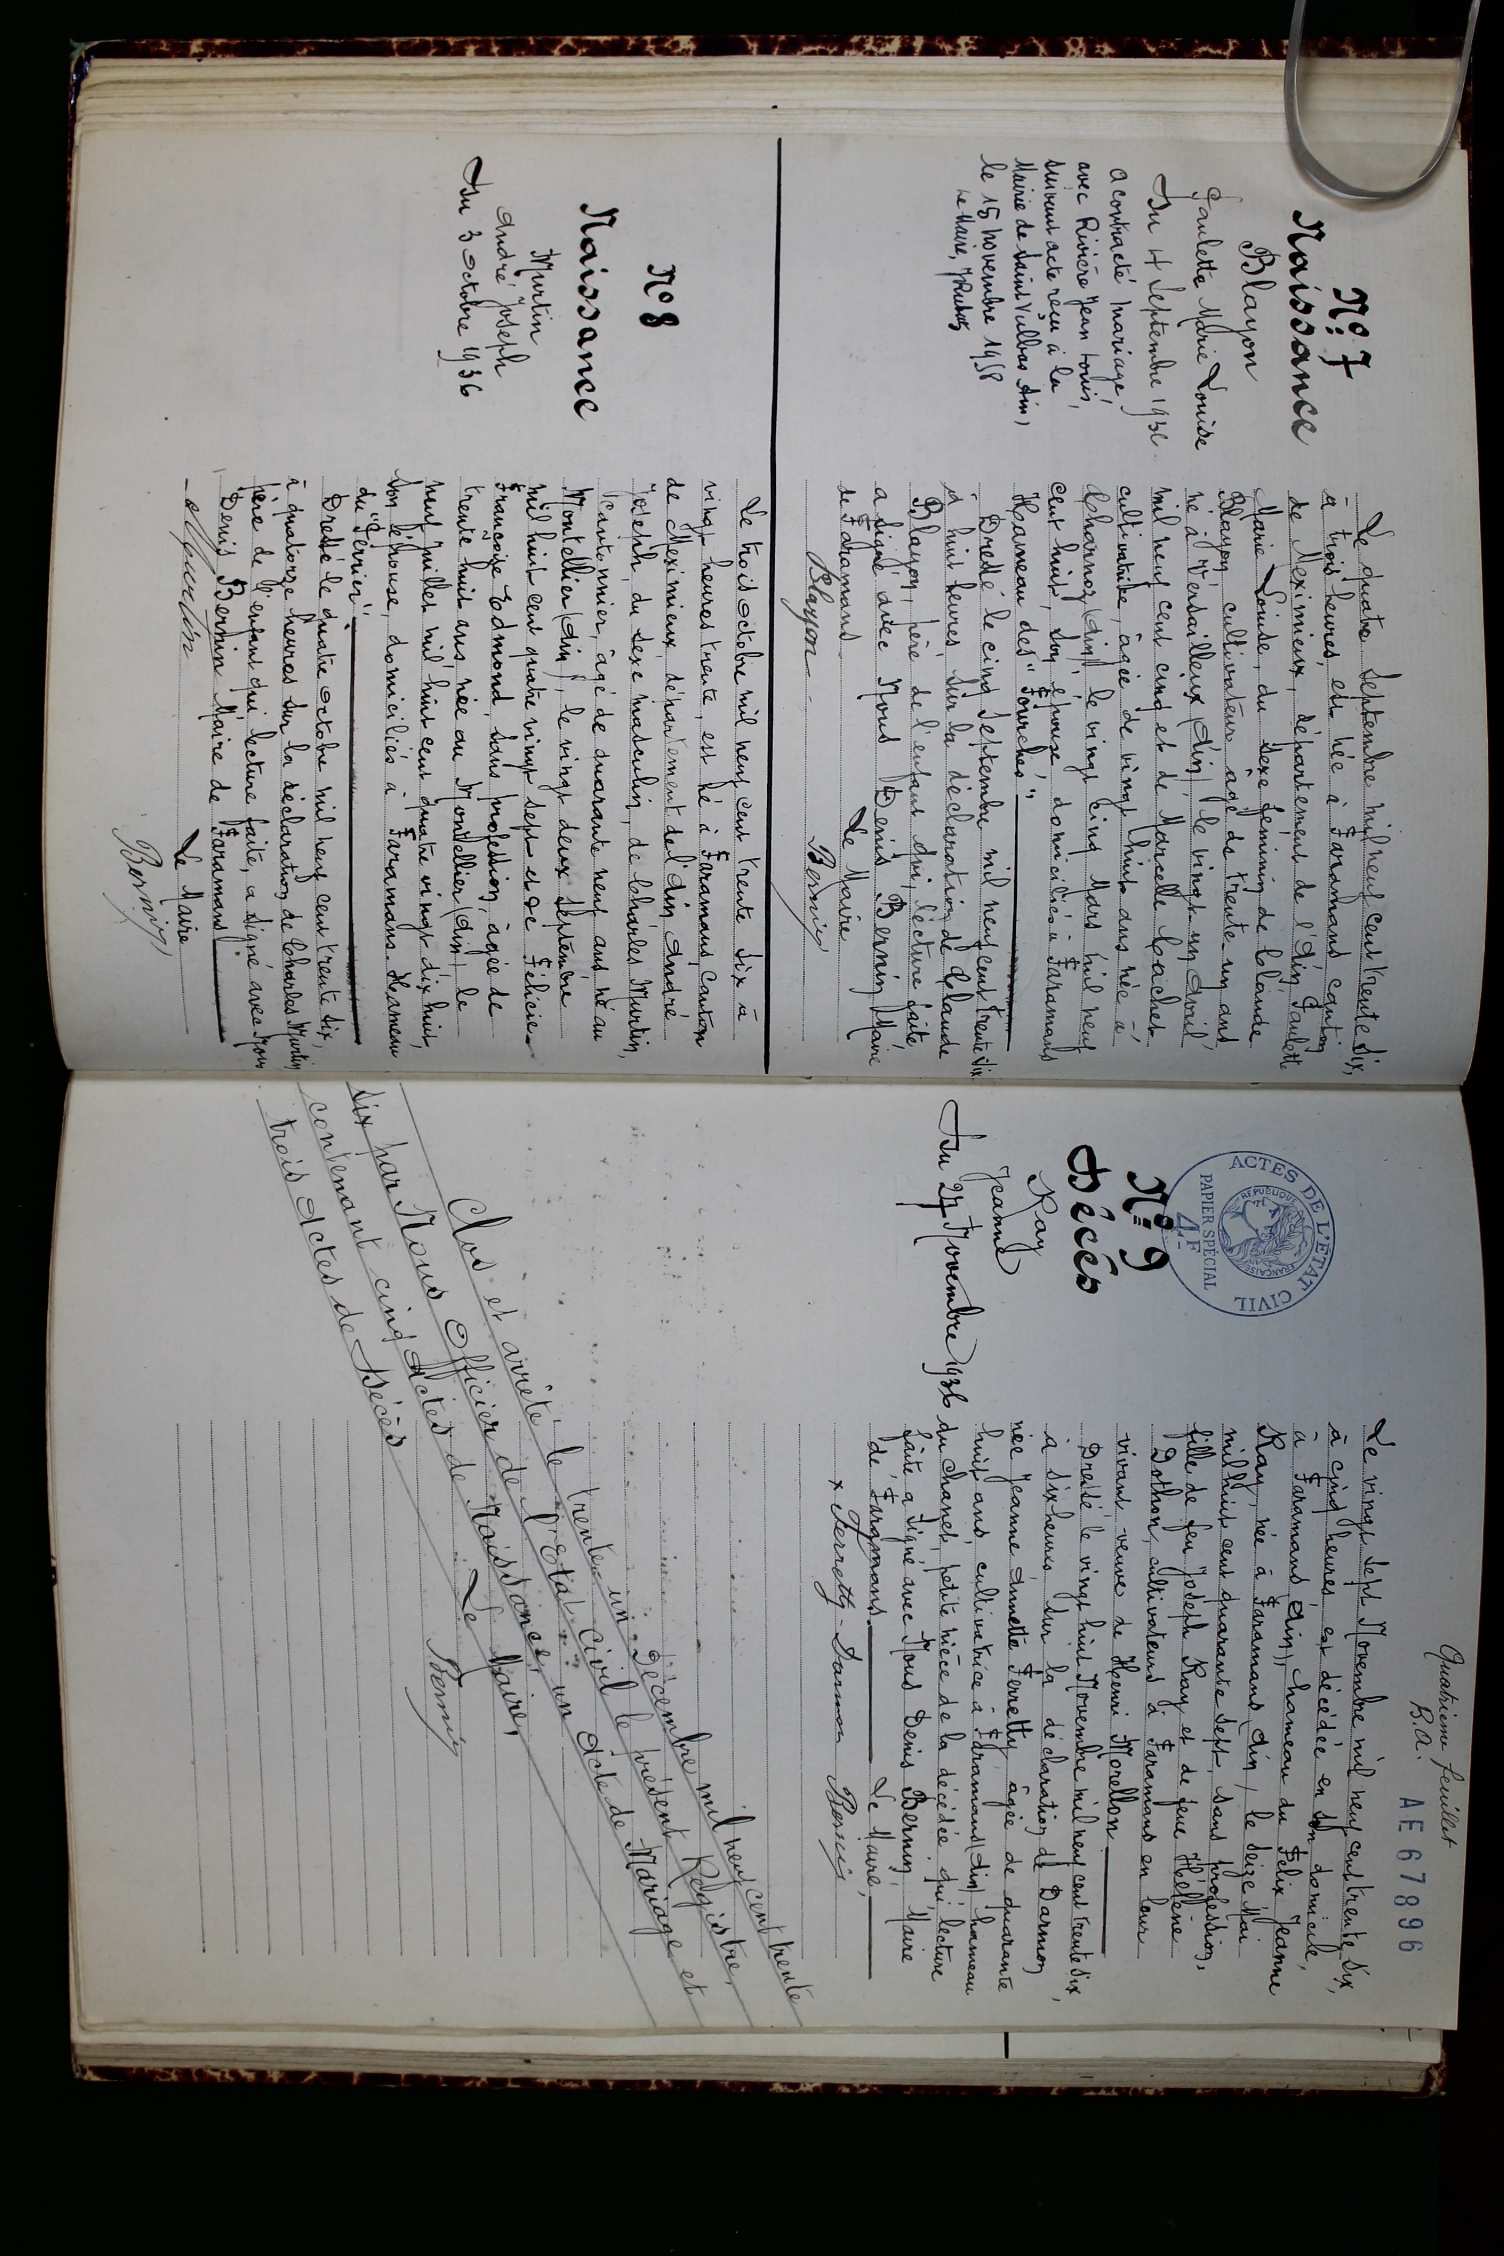 N° 7
Naissance
Blayon
Paulette Marie Louise
Du 4 Septembre 1936.
A contracté mariage
avec Rivière Jean Louis,
suivant acte reçu à la
Mairie de Saint Vulbas Ain,
le 15 novembre 1958
Le Maire,
Le quatre Septembre mil neuf cent trente six,
à trois heures, est née à Faramans canton
de Meximieux, département de l'Ain, Paulette
Marie Louise, du sexe féminin de Claude
Blayon cultivateur âgé de trente un ans,
né à Versailleux (Ain) le vingt un Avril
mil neuf cent cinq et de Marcelle Cachet
cultivatrice, âgée de vingt huit ans née à
Charnoz (Ain) le vingt cinq Mars mil neuf
cent huit, son épouse, domiciliés à Faramans
Hameau des "Fourches"
Dressé le cinq Septembre mil neuf cent trente six
à huit heures, sur la déclaration de Claude
Blayon, père de l'enfant qui, lecture faite,
a signé avec Nous Denis Bernin Maire
de Faramans.
Le Maire
Blayon
Bernin
N° 8
Naissance
Murtin
André Joseph
Du 3 Octobre 1936
Le trois Octobre mil neuf cent trente six à
vingt heures trente, est né à Faramans, canton
de Meximieux, département de l'Ain André
Joseph, du sexe masculin, de Charles Murtin,
Cantonnier, âgé de quarante neuf ans né au
Montellier (Ain), le vingt deux Septembre
mil huit cent quatre vingt sept et de Félicie
Françoise Edmond, sans profession, âgée de
trente huit ans, née au Montellier (Ain) le
neuf Juillet mil huit cent quatre vingt dix huit,
son épouse, domiciliés à Faramans. Hameau
du "Péruier".
Dressé le quatre Octobre mil neuf cent trente six,
à quatorze heures sur la déclaration de Charles Murtin
père de l'enfant qui lecture faite, a signé avec Nous
Denis Bernin Maire de Faramans.
Le Maire
Murtin
Bernin
Quatrième feuillet
B.A.
AE 67896
ACTES DE L'ÉTAT CIVIL
RÉPUBLIQUE FRANÇAISE
PAPIER SPÉCIAL
4F
N° 9
Décès
Ray
Jeanne
Du 27 Novembre 1936
Le vingt sept Novembre mil neuf cent trente six,
à cinq heures est décédée en son domicile,
à Faramans (Ain), hameau du Félix Jeanne
Ray, née à Faramans (Ain) le seize Mai
mil huit cent quarante sept, sans profession,
fille de feu Joseph Ray et de feue Hélène
Dothon, cultivateurs à Faramans en leur
vivant, veuve de Henri Morellon
Dressé le vingt huit Novembre mil neuf cent trente six,
à six heures sur la déclaration de Darmon
née Jeanne Annette Ferretty âgée de quarante
huit ans, cultivatrice à Faramans (Ain) hameau
du chanet, petite nièce de la décédée qui lecture
faite a signé avec Nous Denis Bernin, Maire
de Faramans.
Le Maire,
x Ferretty-Darmon
Bernin
Clos et arrêté le trente un Décembre mil neuf cent trente
six par Nous Officier de l'Etat civil le présent Registre,
contenant cinq Actes de Naissance, un Acte de Mariage et
trois Actes de Décès
Le Maire,
Bernin